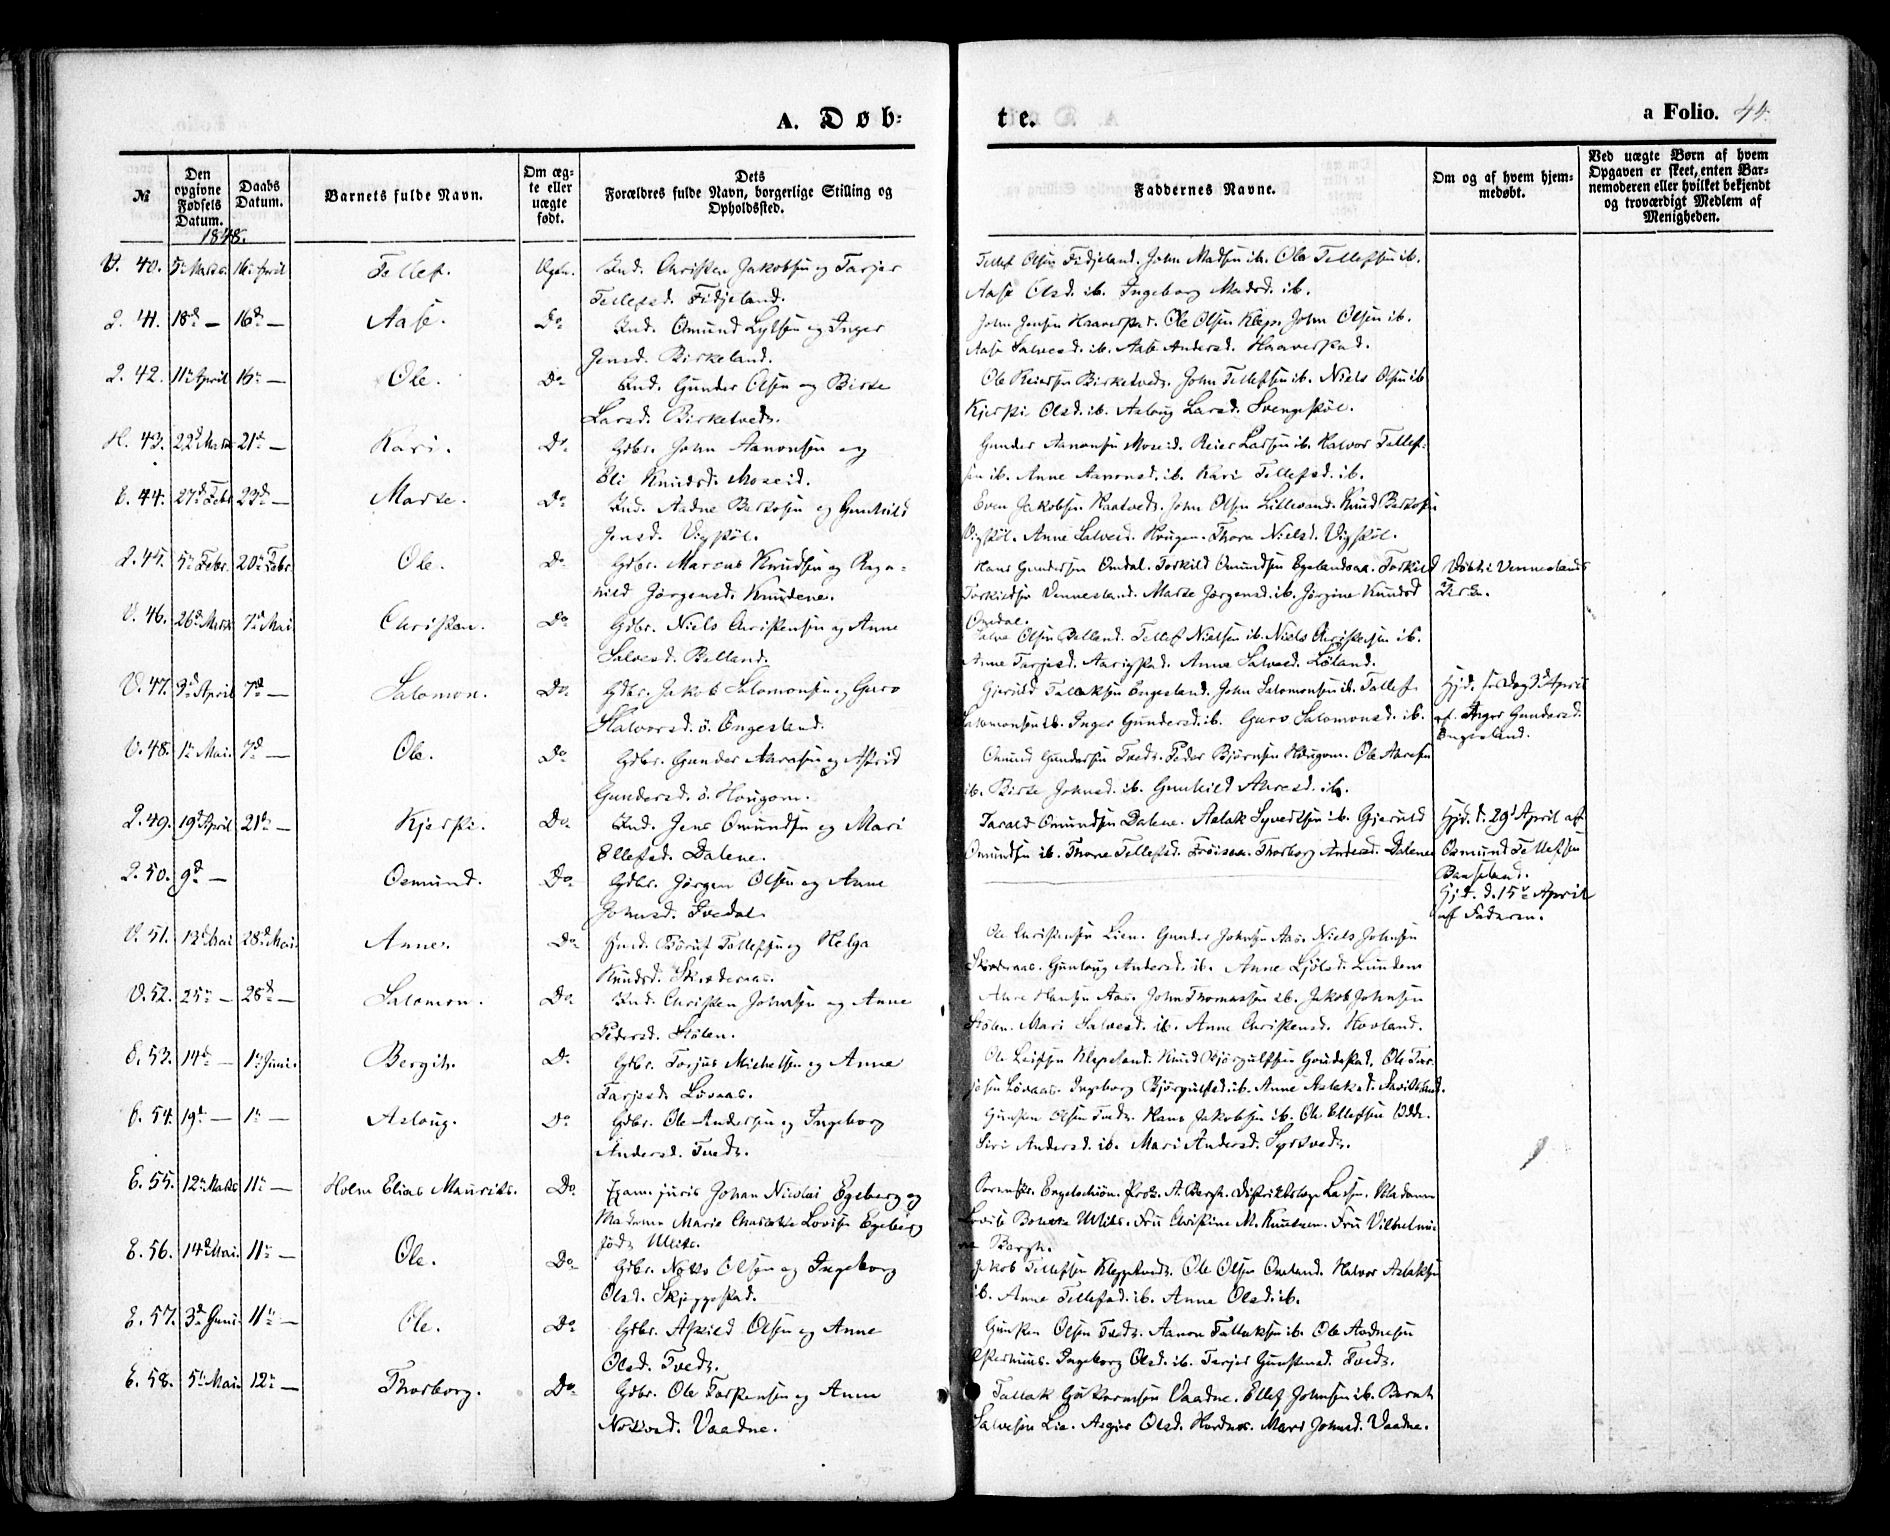 A. Døb-
te.
a Folio. 44.
№
Den opgivne Fødsels Datum.
Daabs Datum.
Barnets fulde Navn.
Om ægte eller uægte født.
Dets Forældres fulde Navn, borgerlige Stilling og Opholdssted.
Faddernes Navne.
Om og af hvem hjemmedøbt.
Ved uægte Børn af hvem Opgaven er skeet, enten Barnemoderen eller hvilket bekjendt og troværdigt Medlem af Menigheden.
1848.
V. 40. 5te Marts. 16de April Tellef. Ind. Christen Jakobsen og Tarjer
Tellefsd. Fidjeland.
Tellef Olsen Fidjeland. John Madsen ib. Ole Tellefsen ib.
Aase Olsd. ib. Ingeborg Madsd. ib.
41. 18d — 16d — Aase. Do Ind. Omund Lylsen og Inger
Jensd. Birkeland.
John Jensen Haaverstad. Ole Olsen Klep. John Olsen ib.
Aase Salvesd. ib. Aase Andersd. Haaverstad.
42. 11te April 16 — Ole. Do Ind. Gunder Olsen og Birte
Larsd. Birketvedt.
Ole Reiersen Birketvedt. John Tellefsen ib. Niels Olsen ib
Kjersti Olsd. ib. Asloug Larsd. Svengestøl.
H. 43. 22d Marts 21d — Kari. Do Gdbr. John Aanonsen og
Eli Knudsd. Moseid.
Gunder Aanonsen Moseid. Reier Larsen ib. Halvor Tellef-
sen ib. Anne Aanonsd. ib. Kari Tellefsd. ib.
E. 44. 27d Febr 23d — Marte. Do Ind. Aadne Bertosen og Gunhild
Jensd. Vigstøl.
Even Jakobsen Raatvedt. John Olsen Lillesand. Knud Bertosen
Vigstøl. Anne Salvesd. Hougen. Thora Nielsd. Vigstøl.
45. 5te Febr. 20de Febr. Ole. Do Gdbr. Marcus Knudsen og Ragn-
hild Jørgensd. Knudene.
Hans Gundersen Omdal. Torkild Omundsen Egelandsaa. Torkild
Torkildsen Vennesland. Marte Jørgensd. ib. Jørgine Knudsd
Omdal.
Døbt i Venneslands
Kirke.
V. 46. 26d Marts 7de Mai Christen. Do Gdbr. Niels Christensen og Anne
Salvesd. Belland.
Salve Olsen Belland. Tellef Nielsen ib. Niels Christensen ib.
Anne Tarjesd. Aarigstad. Anne Salvesd. Løland.
V. 47. 3d April 7d — Salomon. Do Gdbr. Jakob Salomonsen og Guro
Halvorsd. ö. Engesland.
Gjeruld Tallaksen Engesland. John Salomonsen ib. Tellef
Salomonsen ib. Inger Gundersd. ib. Guro Salomonsd. ib.
Hjd. s. Dag 3d April
af Inger Gundersd.
Engesland.
V. 48. 1te Mai. 7d — Ole. Do Gdbr. Gunder Aaresen og Astrid
Gundersd. ö. Hougom.
Omund Gundersen Tvedt. Peder Bjørnsen Hougom. Ole Aaresen
ib. Birte Johnsd. ib. Gunhild Aaresd. ib.
49. 19d April 21de — Kjersti. Do Ind. Jens Omundsen og Mari
Ellefsd. Dalene.
Tarald Omundsen Dalene. Aslak Syvertsen ib. Gjeruld
Omundsen ib. Thore Tellefsd. Frøisaa. Thorborg Andersd. Dalene
Hjd. d. 29d April af
Osmund Tellefsen
Baaseland.
50. 9d — Osmund. Do Gdbr. Jørgen Olsen og Anne
Johnsd. Ivedal.
Hjd. d. 15de April
af Faderen.
V. 51. 13d Mai 28d Mai. Anne. Do Ind. Tarjus Tellefsen og Helga
Knudsd. Skinderaas.
Ole Christensen Lien. Gunder Johnsen Aas. Niels Johnsen
Skinderaas. Gunloug Andersd. ib. Anne Ljøtsd. Lunden
V. 52. 25de — 28d — Salomon. Do Ind. Christen Johnsen og Anne
Pedersd. Stølen.
Aanen Hansen Aas. John Thomassen ib. Jakob Johnsen
Stølen. Mari Salvesd. ib. Anne Christensd. Hovland.
E. 53. 14d — 1te Juni. Bergit. Do Gdbr. Torjus Michelsen og Anne
Tarjesd. Løvaas.
Ole Leifsen Klepsland. Knud Bjørgulfsen Goudestad. Ole Tar-
jesen Løvaas. Ingeborg Bjørgulfsd. ib. Anne Aslaksd.
E. 54. 19d — 1te — Asloug. Do Gdbr. Ole Andersen og Ingeborg
Andersd. Tvedt.
Gunsten Olsen Tvedt. Hans Jakobsen ib. Ole Ellefsen Odde.
Siri Andersd. ib. Mari Andersd. Syrtvedt.
E. 55. 12te Marts 11te — Holm Elias Maurits. Do Exam. juris Johan Nicolai Egeberg og
Madame Marie Charlotte Lovise Egeberg
født Mitis.
Sorenskr. Engelschiøn. Prok. A. Bergh. Distriktslæge Larsen. Madame
Lovise Bolette Mitis. Fru Christine M. Knutzen. Fru Vilhelmi-
ne Bergh.
E. 56. 14d Mai. 11te — Ole. Do Gdbr. Notto Olsen og Ingeborg
Olsd. Skjeggestad.
Jakob Tellefsen Kleppetvedt. Ole Olsen Omland. Halvor Aslaksen
ib. Anne Tellefsd. ib. Anne Olsd. ib.
E. 57. 3d Juni. 11te — Ole. Do Gdbr. Askild Olsen og Anne
Olsd. Tvedt.
Gunsten Olsen Tvedt. Aanon Tallaksen ib. Ole Aadnesen
Ingeborg Olsd. ib. Tarjer Gunstensd. Tvedt.
E. 58. 5te Mai. 12te — Thorborg. Do Gdbr. Ole Torstensen og Anne
Nottosd. Vaadne.
Tallak Guttormsen Vaadne. Ellef Johnsen ib. Bernt
Salvesen Lie. Asgier Olsd. Hordnes. Mari Johnsd. Vaadne.